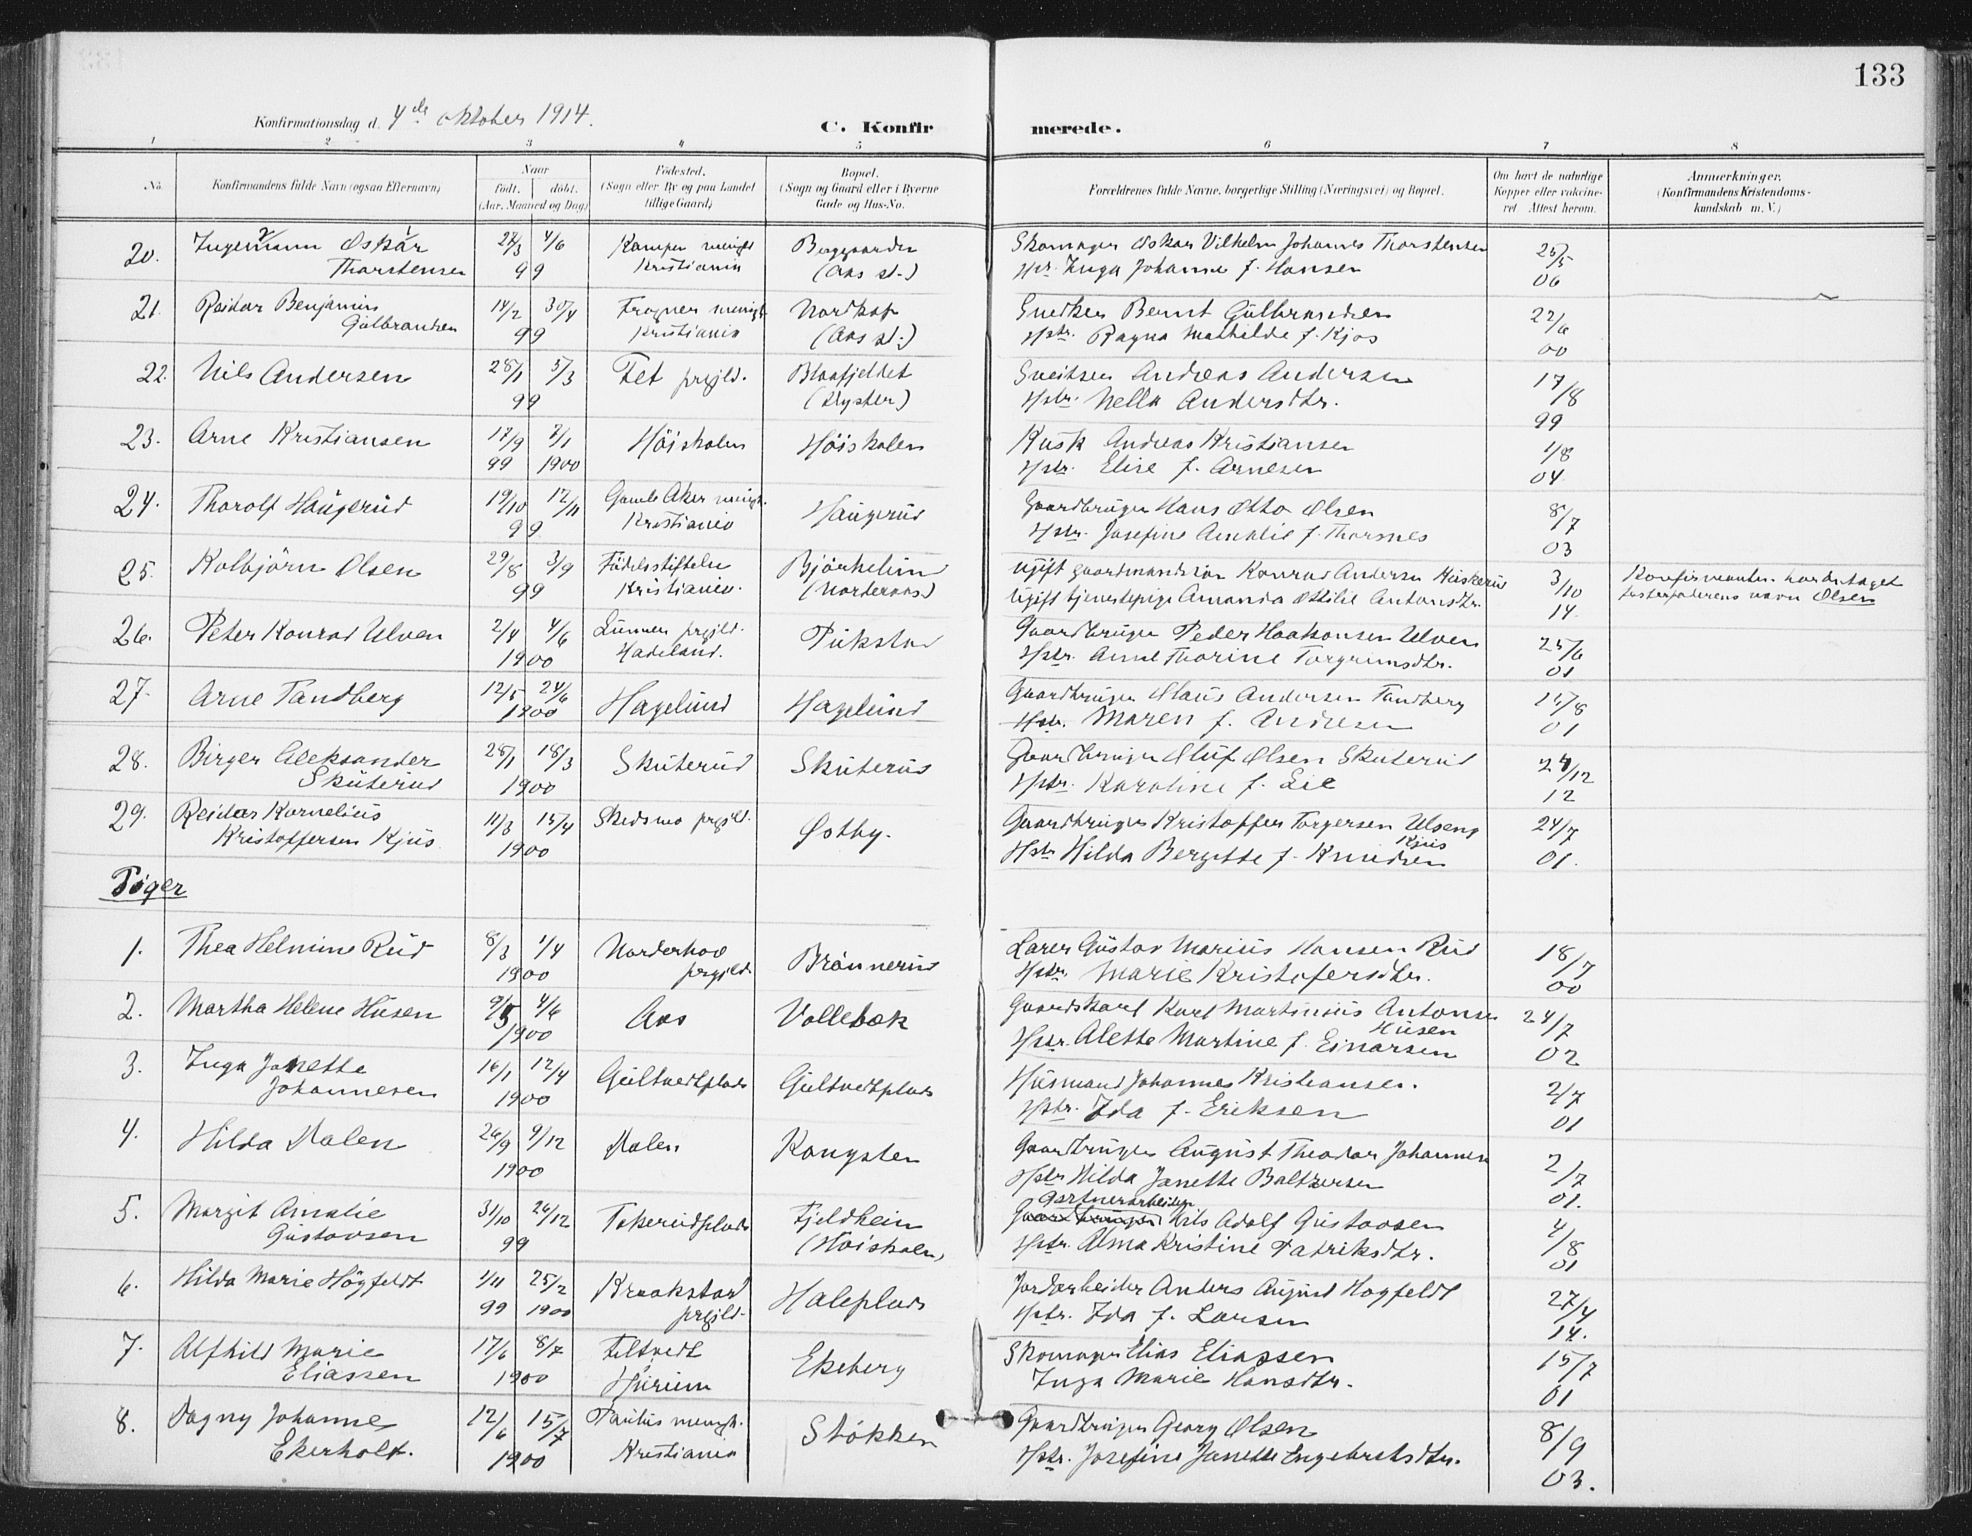 133
Konfirmationsdag d. 4de oktober 1914.
C. Konfirmerede.
1 2 3 4 5 6 7 8
No. Konfirmandens fulde Navn (ogsaa Efternavn) Naar født. døbt. (Aar, Maaned og Dag) Fødested. (Sogn eller By og paa Landet tillige Gaard) Bopæl. (Sogn og Gaard eller i Byerne Gade og Hus-No. Forældrenes fulde Navne, borgerlige Stilling (Næringsvei) og Bopæl. Om havt de naturlige Kopper eller vakcineret. Attest herom. Anmærkninger. (Konfirmandens Kristendomskundskab m. V.)
20. Ingemann Oskar 4/6 Kampen menigh. Skomager Oskar Vilhelm Johannes Thorstensen 25/5
Thorstensen 99 Kristiania (Aas st.) Hstr. Inga Johanne f. Hansen 06
21. Reidar Benjamin 14/2 30/4 Frogner menigh. Nordkap Snedker Bernt Gulbrandsen 22/6
Gulbrandsen 99 Kristiania (Aas st.) Hstr. Ragna Mathilde f. Kjos 00
22. Nils Andersen 28/1 5/3 Fet prgjld. Blaafjeldet Sveitser Andreas Andersen 17/8
99 (Dyster) Hstr. Nella Andersdtr. 99
23. Arne Kristiansen 17/9 7/1 Höiskolen Höiskolen Kusk Andreas Kristiansen 1/8
99 1900 Hstr. Elise f. Arnesen 04
24. Thorolf Haugerud 19/10 12/11 Gamle Aker menigh. Haugerud Gaardbruger Hans Otto Olsen 8/7
99 Kristiania Hstr. Josefine Amalie f. Thorsnes 03
25. Kolbjörn Olsen 29/8 3/9 Födselsstiftelsen Bjørkeheim ugift gaardmandssön Konrad Andersen Huskerud 3/10 Konfirmanten har antaget
99 Kristiania. (Norderaas) Ugift tjenestepige Amanda Ottilie Antonsdtr. 14. fosterfaderens navn Olsen
26. Peter Konrad Ulven 2/4 4/6 Lunner prgjld. Pukstad Gaardbruger Peder Haakonsen Ulven 25/6
1900 Hadeland. Hstr. Anne Thorine Torgrimsdtr. 01
27. Arne Tandberg 12/5 24/6 Hagelund Hagelund Gaardbruger Olaus Andersen Tandberg 15/8
1900 Hstr. Maren f. Andresen 01
28. Birger Aleksander 28/1 18/3 Skuterud Skuterud Gaardbruger Oluf Olsen Skuterud 24/12
Skuterud 1900 Hstr. Karoline f. Lie 12
29. Reidar Kornelius 11/3 15/4 Skedsmo prgjld. Østby. Gaardbruger Kristoffer Torgersen Ulseng 24/7
Kjus
Kristoffersen Kjus. 1900 Hstr Hilda Bergitte f. Knudsen 01.
Piger
1. Thea Helmine Rud 8/3 1/4 Norderhov Brönnerud Lærer Gustav Marius Hansen Rud 18/7
1900 prgjld. Hstr. Marie Kristofersdtr. 00
2. Martha Helene Husen 9/5 4/6 Aas Vollebæk Gaardskarl Karl Martinius Antonsen 24/7
Husen
1900 Hstr. Alette Martine f. Einarsen 02
3. Inga Janette 16/1 12/4 Gultvedtplads Gultvedtplads Husmand Johannes Kristiansen. 2/7
Johannesen 1900 Hstr. Ida f. Eriksen 01
4. Hilda Dalen 26/9 9/12 Dalen Kongsten Gaardbruger August Theodor Johannesen 2/7
1900 Hstr Hilda Janette Baltzersen 01.
Gartnerarbeider
5. Margit Amalie 31/10 26/12 Takerudplads Fjeldheim Gaardbruger Nils Adolf Gustavsen 4/8
Gustavsen 99 (Höiskolen) Hstr. Alma Kristine Patriksdtr. 01
6. Hilda Marie Högfeldt 1/11 25/2 Kraakstad Haleplads Jordarbeider Anders August Hogfeldt 27/4
99 1900 prgjld. Hstr. Ida f. Larsen 14.
7. Alfhild Marie 17/6 8/7 Filtvedt Ekeberg Skomager Elias Eliassen 15/7
Eliassen 1900 Hurum Inga Marie Hansdtr. 01
8. Dagny Johanne 12/6 15/7 Paulus menigh. Stökken Gaardbruger Georg Olsen 8/9
Ekerholt. 1900 Kristiania Hstr. Josefine Janette Engebretsdtr. 03.